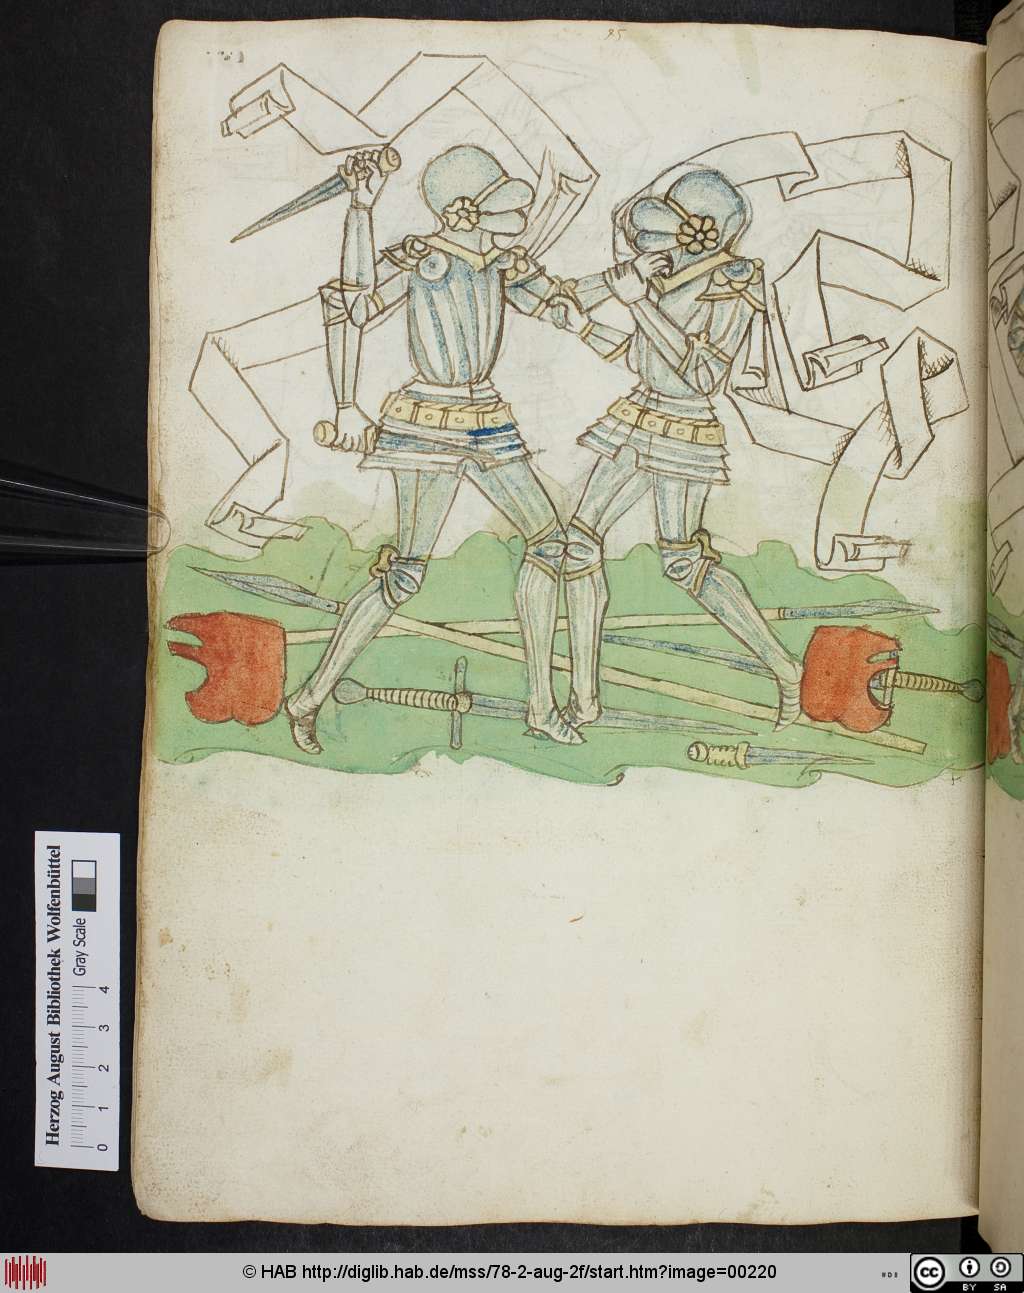 95
Herzog August Bibliothek Wolfenbüttel
Gray Scale
0 1 2 3 4
© HAB http://diglib.hab.de/mss/78-2-aug-2f/start.htm?image=00220
cc
BY SA